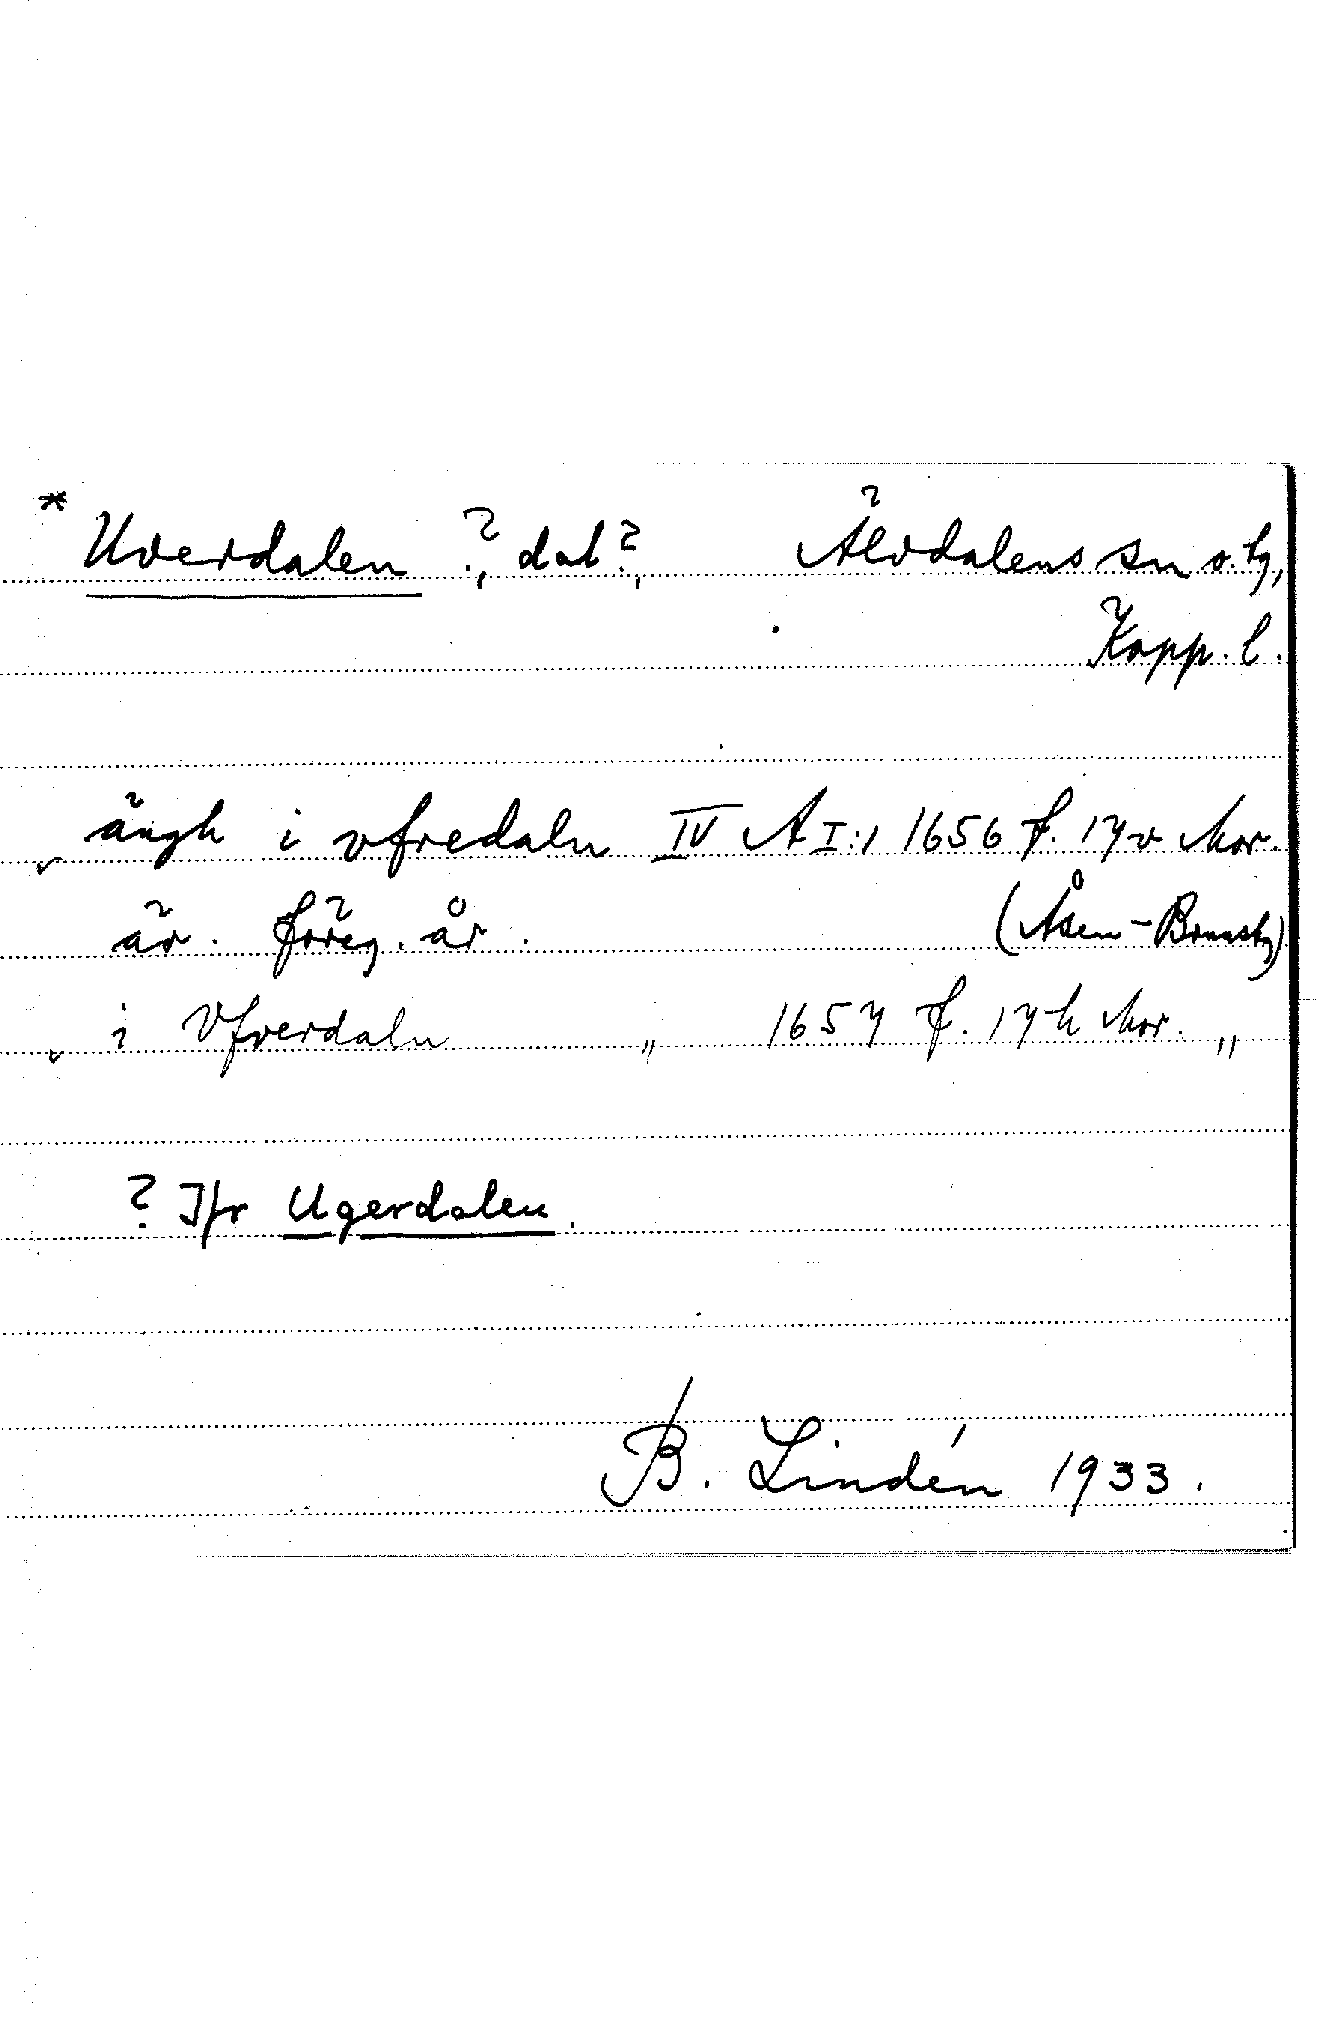 * Uverdalen ?, dal?, Älvdalens sn o. tg,
Kopp. l.
ängh i vfredaln IV A I:1 1656 f. 17v Mor.
är. föreg. år. (Åsen-Brunnsbg)
i Vfverdaln „ 1657 f. 17 h Mor. „
? Jfr Ugerdalen.
B. Lindén 1933.